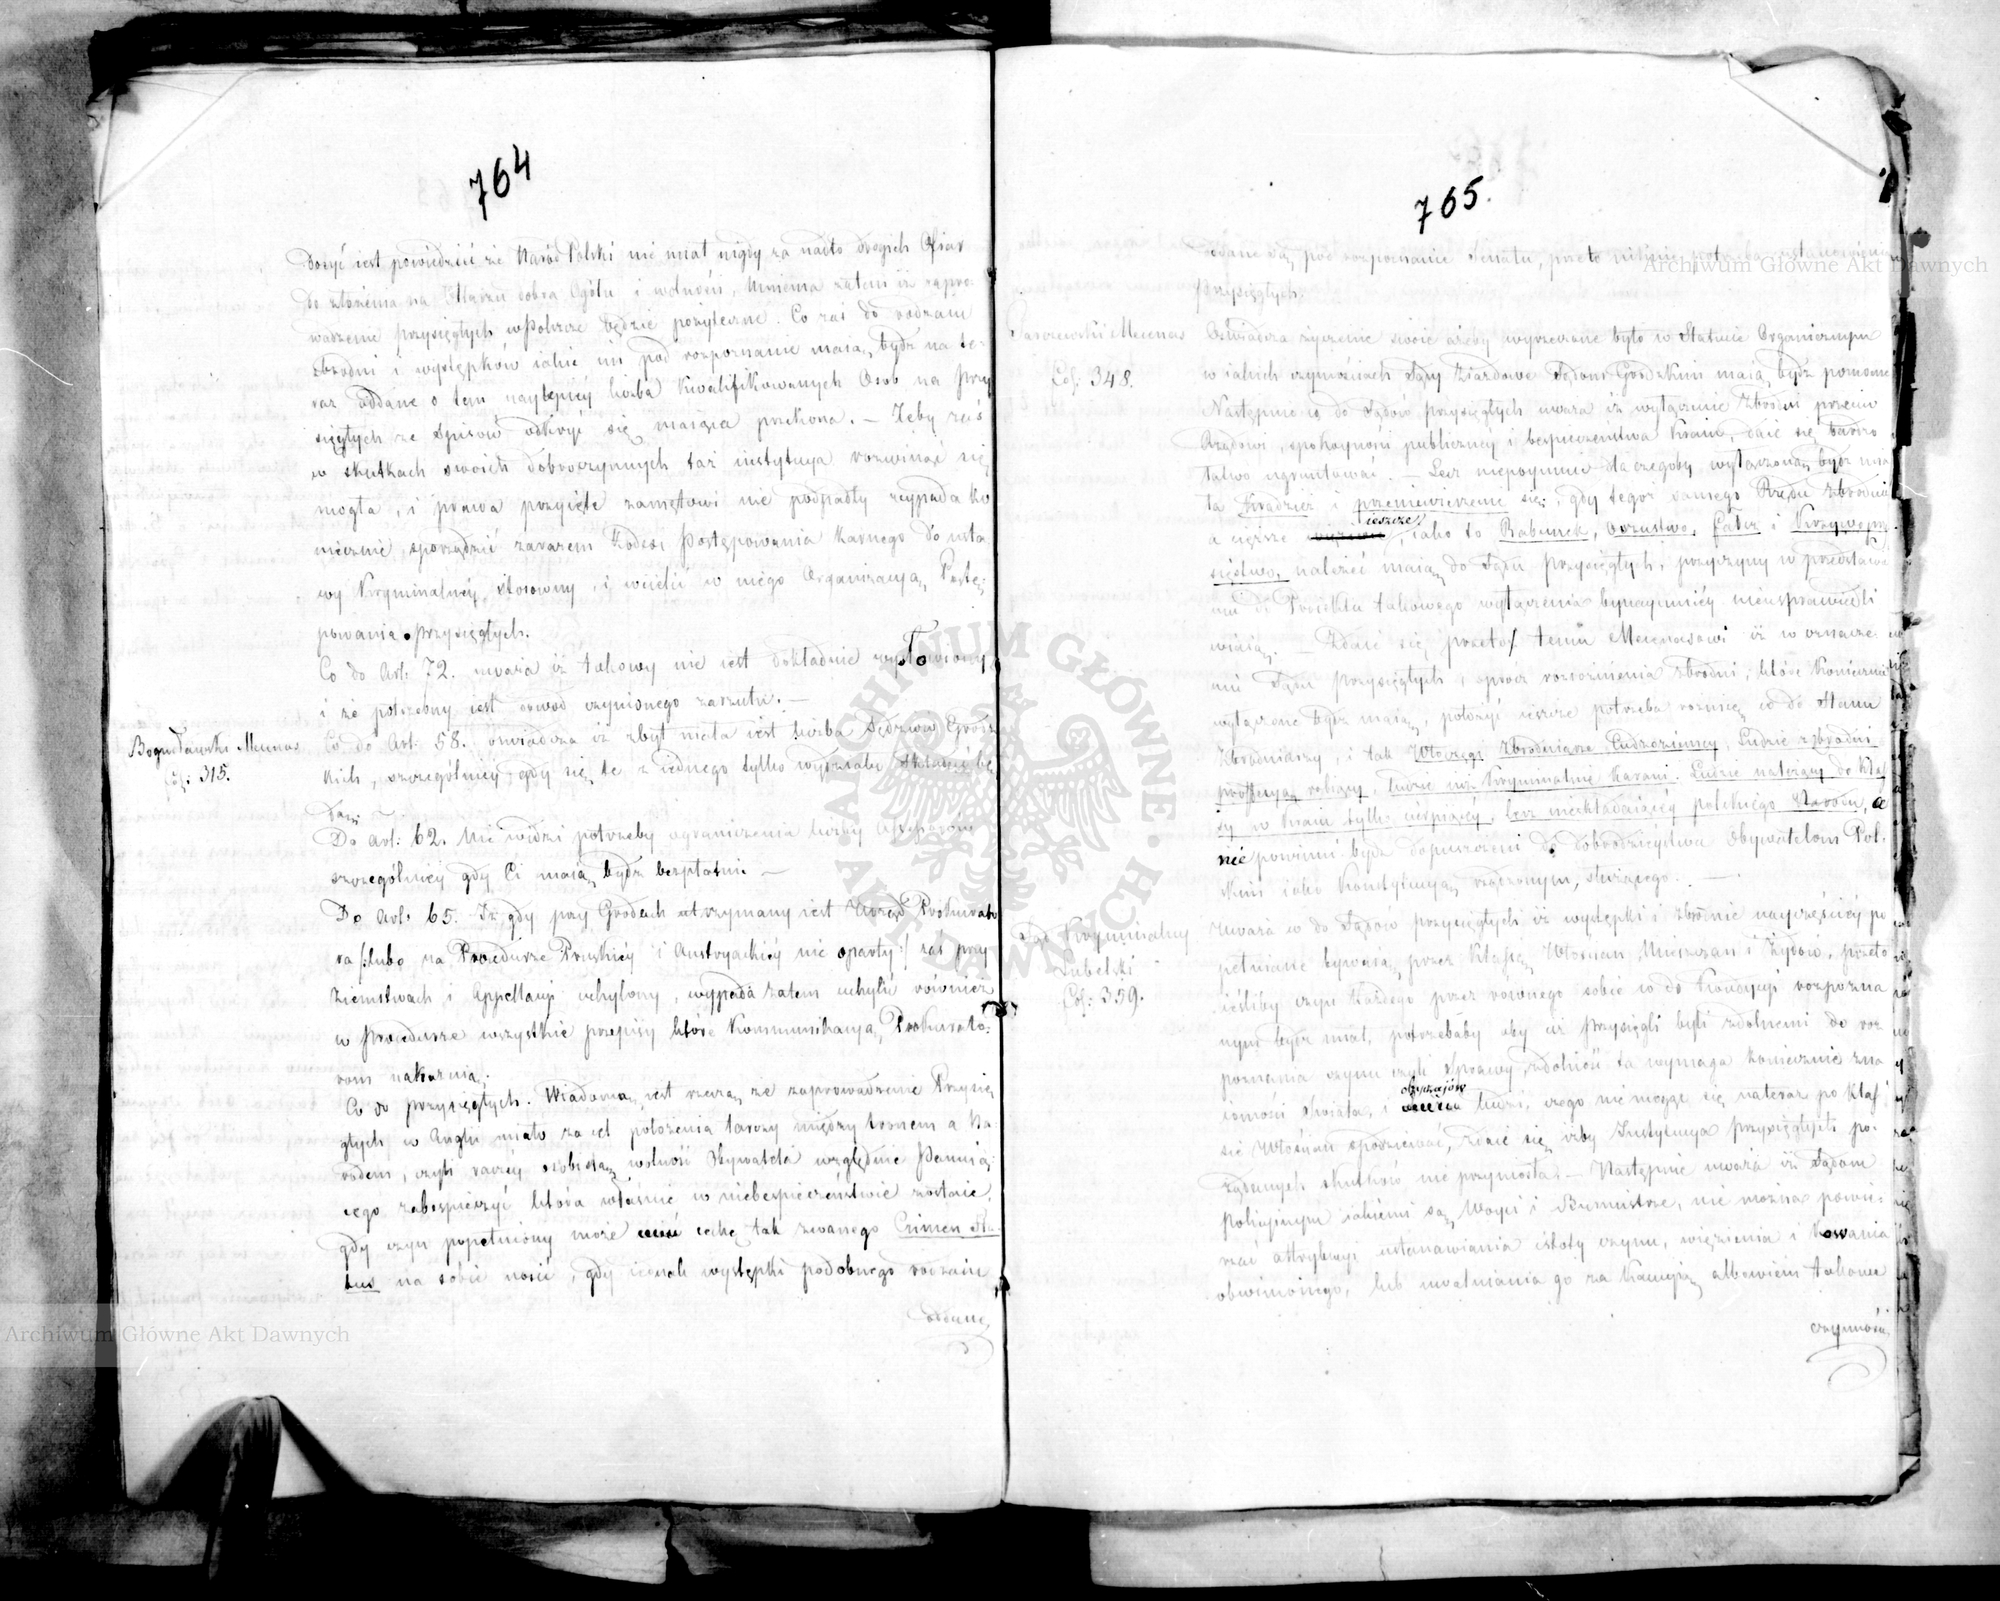 764
Dosyć iest powiedzieć że Naród Polski nie miał nigdy za nadto drogich Ofiar
do złożenia na Ołtarzu dobra Ogółu i wolności, mniema zatem iż zapro-
wadzenie przysięgłych w Polszcze będzie pożyteczne. Co zaś do rodzaiu
zbrodni i występków iakie im pod rozpoznanie maią bydź na te-
raz oddane o tem naylepiey liczba kwalifikowanych Osob na Przy
sięgłych ze spisów odkryć się maiąca przekona. — Żeby zaś
w skutkach swoich dobroczynnych taż instytucya rozwinąć się
mogła, i prawa przyięte zamętowi nie podpadły wypada ko
niecznie sporządzić zarazem Kodex Postępowania Karnego do usta
wy Kryminalney stosowny, i wcielić w niego Organizacyą Postę-
powania przysięgłych.
Co do Art: 72. uważa iż takowy nie iest dokładnie wysłowiony
i że potrzebny iest dowód czynionego zarzutu. —
Bogusławski Mecenas
Fol: 315.
Co do Art: 58. oświadcza iż zbyt mała iest liczba Sędziów Grodz
kich, szczególniey gdy się te z iednego tylko wydziału składać bę
dą.
Do Art: 62. Nie widzi potrzeby ograniczenia liczby Assessorów
szczególniey gdy Ci maią bydź bezpłatni. —
Do Art: 65. Iż gdy przy Grodach utrzymany iest Urząd Prokurato
ra /:lubo na Procedurze Pruskiey i Austryackiey nie oparty:/ zaś przy
Ziemstwach i Appellacyi uchylony, wypada zatem uchylić również
w Procedurze wszystkie przepisy które Kommunikacyą Prokurato-
rom nakazuią.
Co do przysięgłych. Wiadomą iest rzeczą że zaprowadzenie Przysię
głych w Anglii miało za cel położenia tarczy między tronem a Na-
rodem, czyli raczey osobistą wolność Obywatela względnie Panuią-
cego zabespieczyć która właśnie w niebespieczeństwie zostaie,
gdy czyn popełniony może cechę tak zwanego Crimen Sta-
tus na sobie nosić, gdy iednak występki podobnego rodzaiu
oddane
765.
oddane są pod rozpoznanie Senatu, przeto niknie potrzeba ustanowienia
przysięgłych.
Mecenas
Fol: 348.
Oświadcza życzenie swoie ażeby wyrzeczone było w Statucie Organicznym
w iakich czynnościach Sądy Ziazdowe Sądom Grodzkim maią bydź pomocne
Następnie co do Sądów przysięgłych uważa iż wyłączenie Zbrodni przeciw
Rządowi, spokoyności publiczney i bespieczeństwa Kraiu, daie się bardzo
łatwo ugruntować. — Lecz niepoymuie dla czegoby wyłączoną bydź mia
ła Kradzież i przeniewierzenie się, gdy tegoż samego Rzędu Zbrodnie
a cięższe ieszcze, iako to Rabunek, oszustwo, fałsz i Krzywoprzy-
sięstwo, należeć maią do Sądu Przysięgłych, przyczyny w przedstawie
niu do Proiektu takowego wyłączenia bynaymniey nieusprawiedli
wiaią. — Zdaie się przeto temu Mecenasowi iż w oznacze-
niu Sądu Przysięgłych, oprócz rozróżnienia Zbrodni, które koniecznie
wyłączone bydź maią, położyć ieszcze potrzeba różnicę co do Stanu
Zbrodniarzy, i tak Włóczęgi Zbrodniarze Cudzoziemcy, Ludzie z zbrodni
professyą robiący, ludzie iuż Kryminalnie Karani. Ludzie należący do klas
sy w Kraiu tylko cierpianey, lecz nieskładaiącey polskiego Narodu, a
nie powinni bydź dopuszczeni do dobrodzieystwa Obywatelom Pol-
skim iako Konstytucyą rządzonym, służącego. —
Sąd Kryminalny
Lubelski
Fol: 359.
Uważa co do Sądów przysięgłych iż występki i zbrodnie nayczęściey po
pełniane bywaią przez Klassę Włościan Mieszczan i Żydów, przeto
ieśliby czyn każdego przez równego sobie co do Kondycyi rozpozna
nym bydź miał, potrzebaby aby ciż Przysięgli byli zdolnemi do roz
poznania czynu czyli Sprawy, zdolność ta wymaga koniecznie zna
iomości świata, i obyczajów ludzi, czego nie mogąc się nateraz po Klas-
sie Włościan spodziewać, zdaie się iżby Instytucya Przysięgłych po-
żądanych skutków nie przyniosła. — Następnie uważa iż Sądom
policyinym iakiemi są Woyci i Burmistrze, nie można powie-
rzać attrybucyi ustanawiania istoty czynu, więzienia i kowania
obwinionego, lub uwalniania go za Kaucyią albowiem takowe
czynności
Archiwum Główne Akt Dawnych
Archiwum Główne Akt Dawnych
ARCHIWUM GŁÓWNE
AKT DAWNYCH